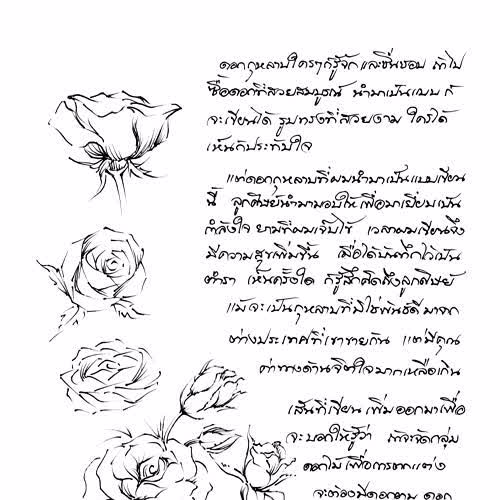 ดอกกุหลาบใครๆก็รู้จัก และชื่นชอบ ถ้าไป
ซื้อดอกที่สวยสมบูรณ์ นำมาเป็นแบบ ก็
จะเขียนได้ รูปทรงที่สวยงาม ใครได้
เห็นก็ประทับใจ
แต่ดอกกุหลาบที่ผมนำมาเป็นแบบเขียน
นี้ ลูกศิษย์นำมามอบให้ เพื่อมาเยี่ยมเป็น
กำลังใจ ยามที่ผมเจ็บไข้ เวลาผมเขียนจึง
มีความสุขเพิ่มขึ้น เมื่อได้บันทึกไว้เป็น
ตำรา เห็นครั้งใด ก็รู้สึกคิดถึงลูกศิษย์
แม้จะเป็นกุหลาบที่มิใช่พันธ์ดี มาจาก
ต่างประเทศที่เขาขายกัน แต่มีคุณ
ค่าทางด้านจิตใจมากเหลือเกิน
เส้นที่เขียน เพิ่มออกมาเพื่อ
จะบอกให้รู้ว่า ถ้าจะจัดกลุ่ม
ดอกไม้ เพื่อการตกแต่ง
จะต้องมีดอกตูม ดอก